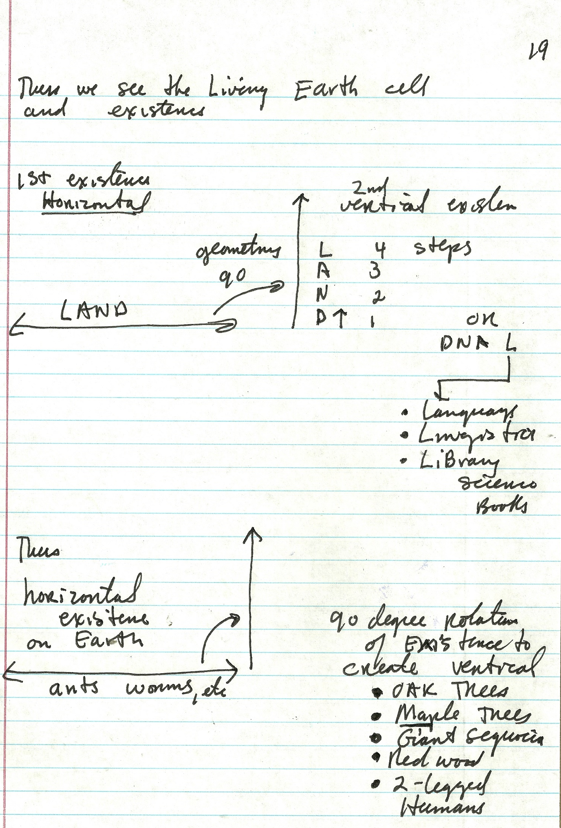 19
Thus we see the Living Earth cell
and existence
1st existence
Horizontal
2nd
vertical existen
geometry
90
L 4 steps
A 3
N 2
D↑ 1
LAND
OR
DNA L
• Languags
• Linguistics
• LiBrary
Science
Books
Thus
horizontal
existence
on Earth
ants worms, etc
90 degree rotation
of Existence to
create ventrical
• OAK Trees
• Maple Trees
• Giant Sequoia
• Redwood
• 2-legged
Humans